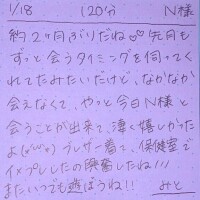 1/18 120分 N様
約2ヶ月ぶりだね♡♡先月も
ずっと会うタイミングを伺ってく
れてたみたいだけど、なかなか
会えなくて、やっと今日N様と
会うことが出来て、凄く嬉しかった
よ(๑>◡<๑)ブレザー着て、保健室で
イメプレしたの興奮したね!!!
またいつでも遊ぼうね!! みと